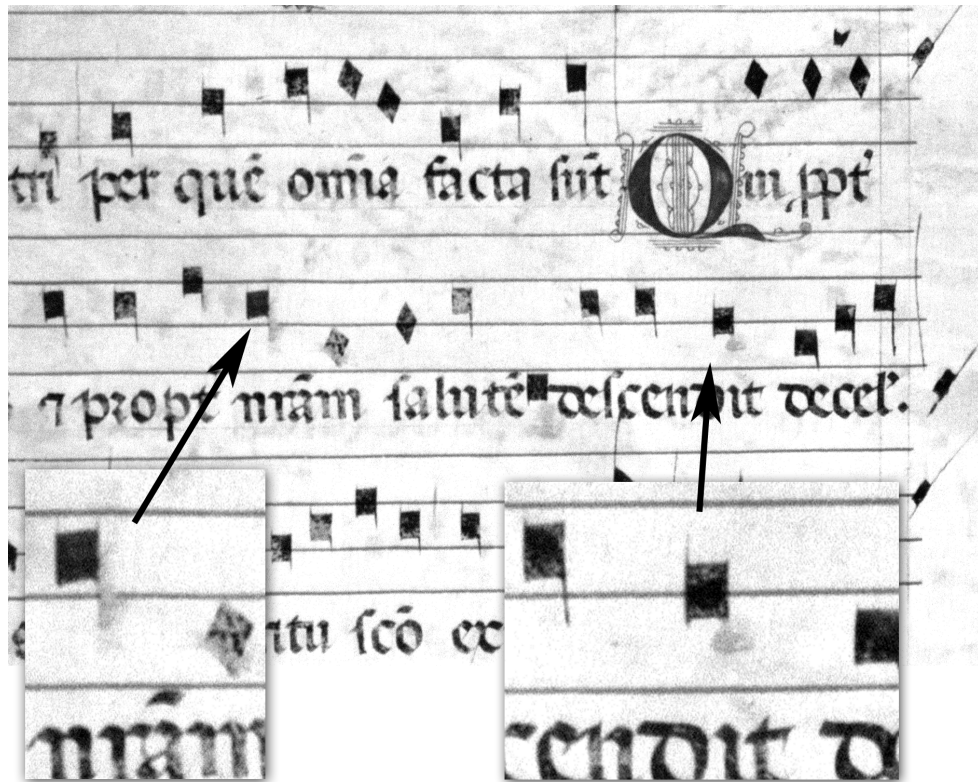 tri per quē om̄ia facta sūt Qui ,ppt̄
⁊ propt̄ nr̄am salutē descendit decel̛.
itu scō ex
nr̄am
cendit de